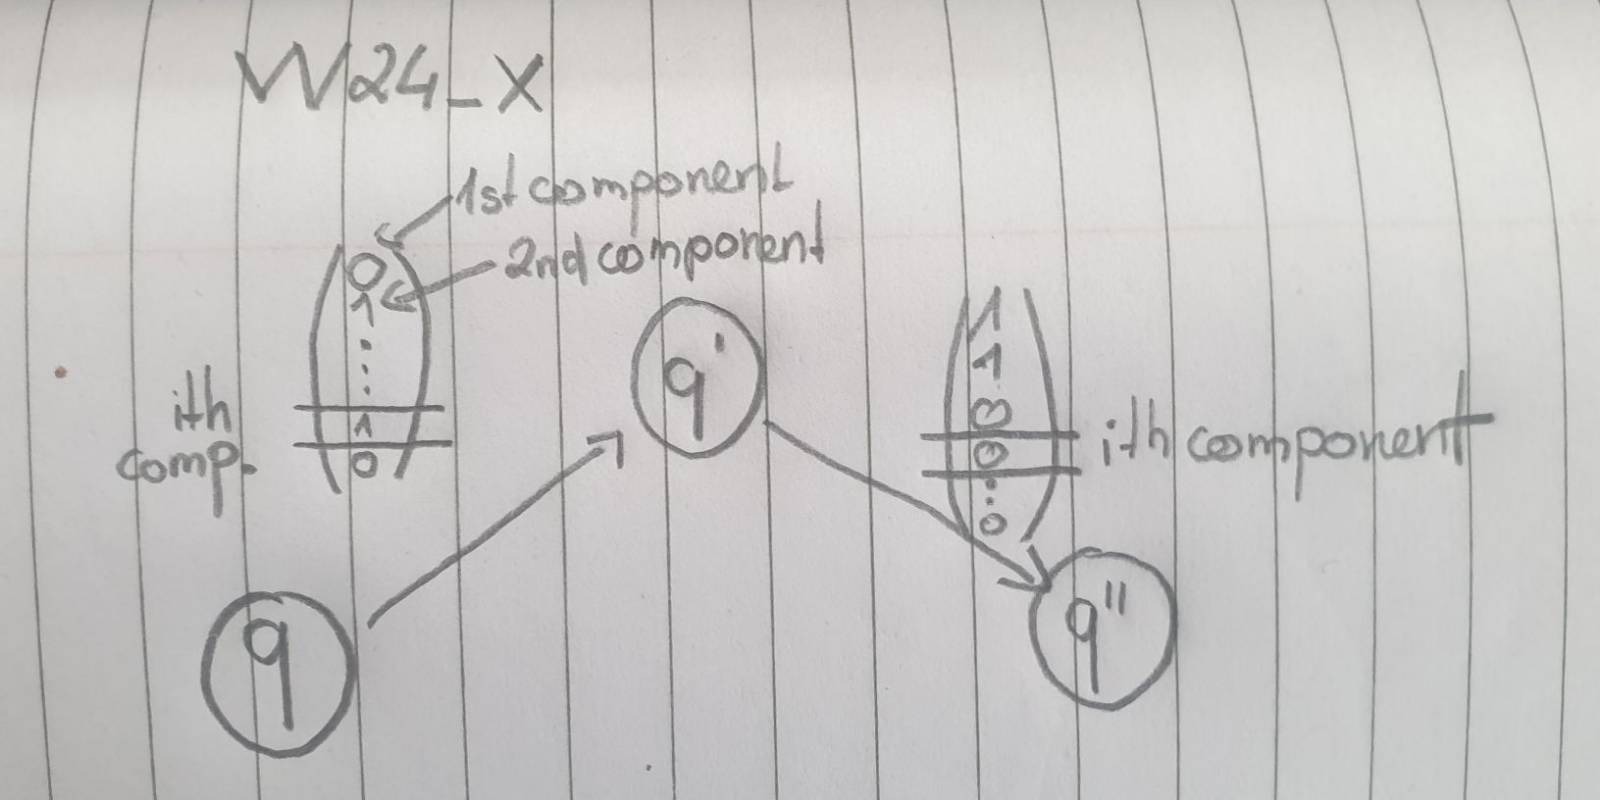 W24_X
1st component
2nd component
0
1
⋮
1
0
ith
comp.
q'
1
1
0
0
⋮
0
ith component
q
q''